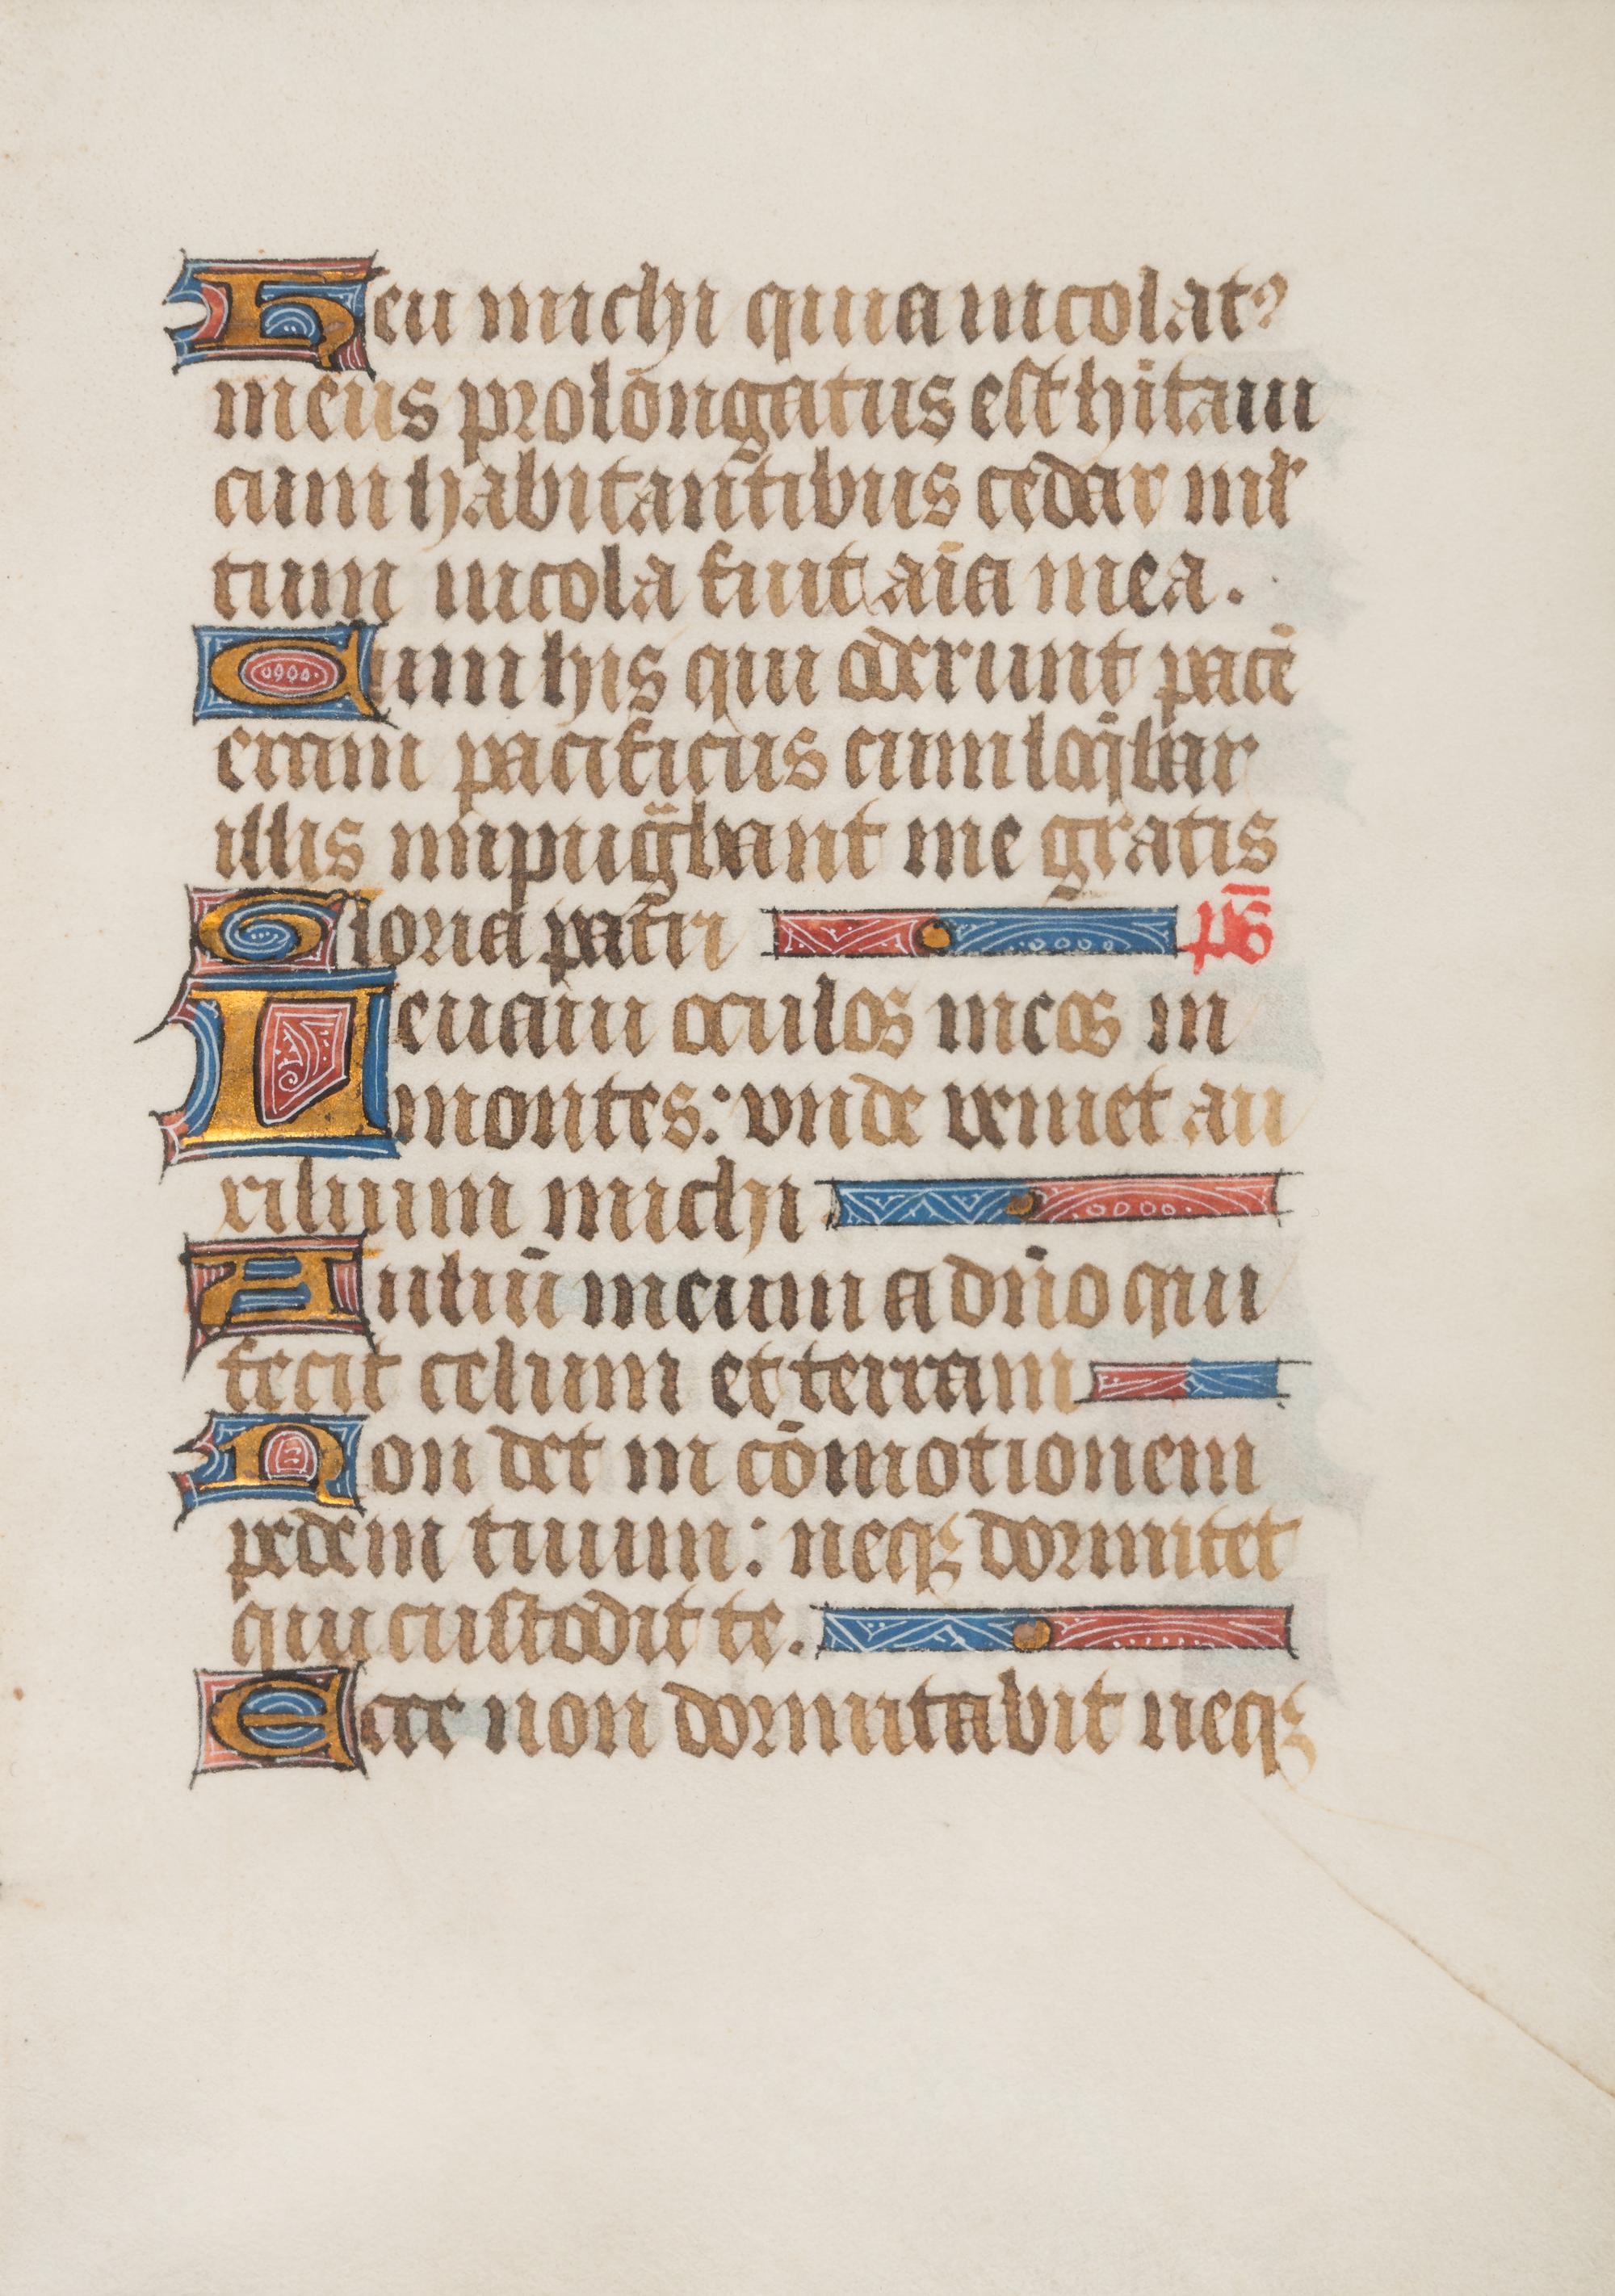 Heu michi quia incolatꝰ
meus prolongatus est hitaui
cum habitantibus cedar ml̕
tum incola fuit aīa mea.
Cum his qui oderunt pacē
eram pacificus cum loq̄bar
illis inpug̈bant me gratis
Gloria patri pš
Leuaui oculos meos in
montes: vnde veniet au
xilium michi
Auliū meum a dn̄o qui
fecit celum et terram
Non det in cōmotionem
pedem tuum: neqꝫ dormitet
qui custodit te.
Ecce non dormitabit neqꝫ